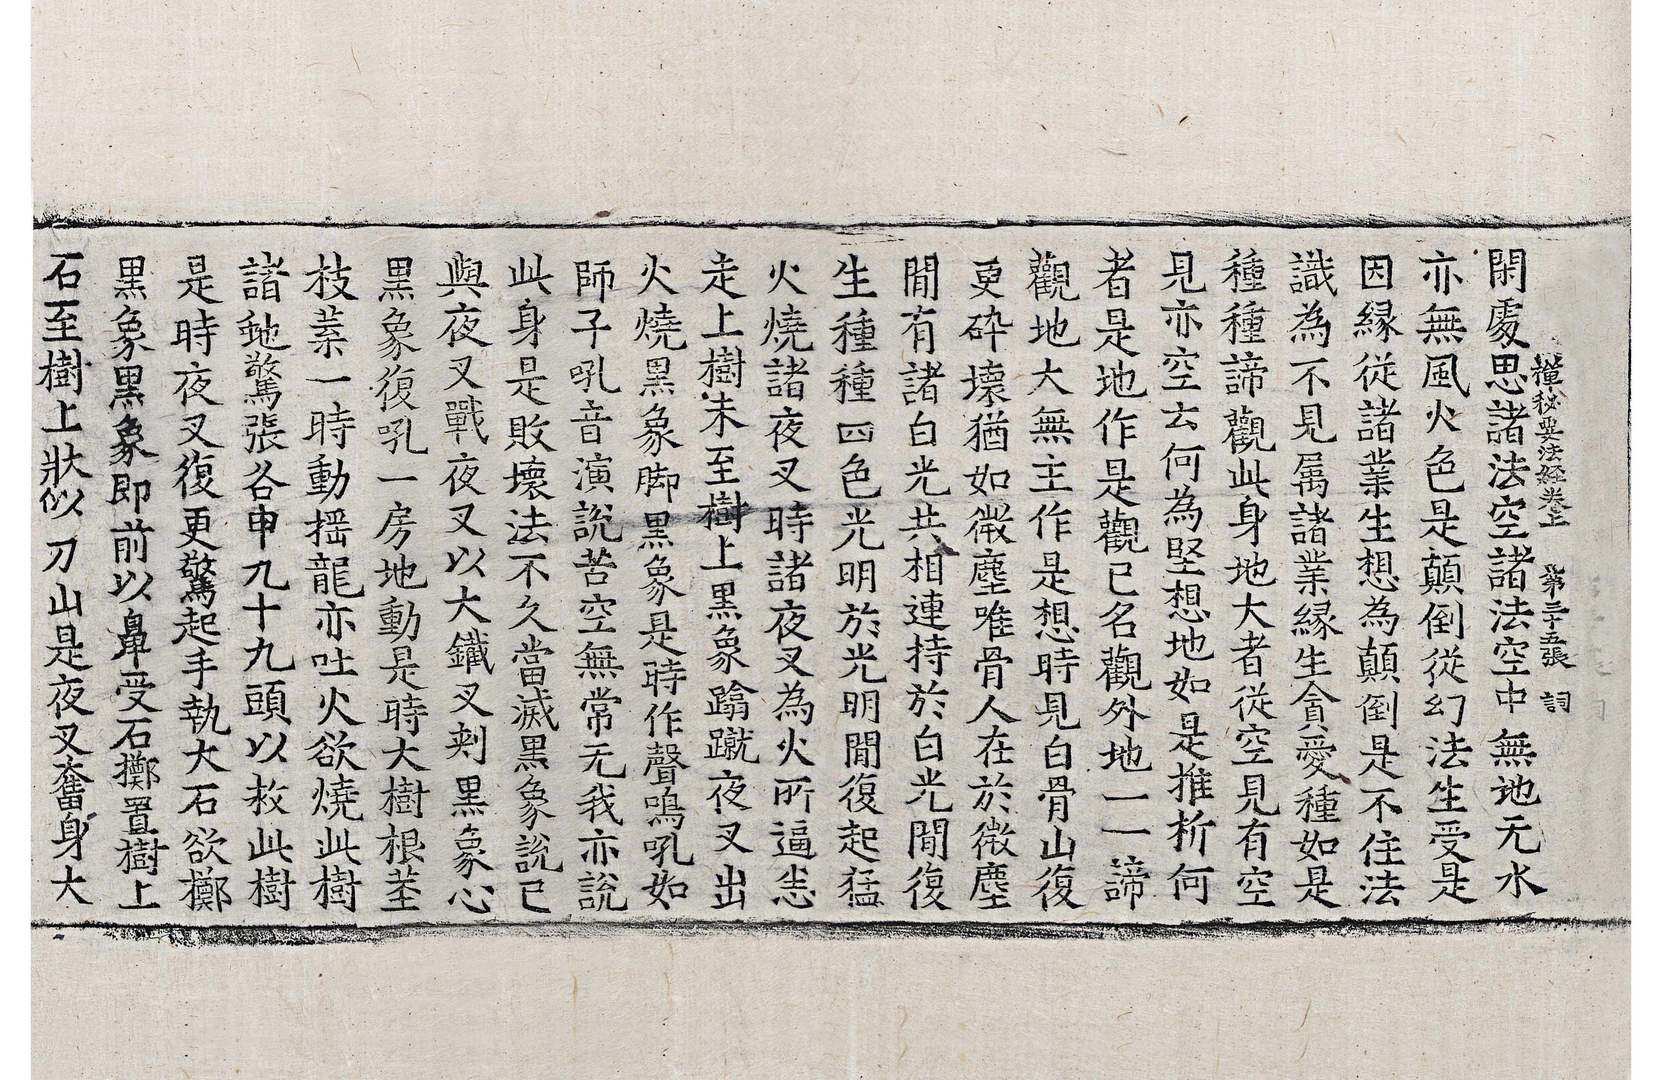 禪秘要法經卷上 第三十五張 詞
閑處思諸法空諸法空中無地无水
亦無風火色是顛倒從幻法生受是
因緣從諸業生想為顛倒是不住法
識為不見屬諸業緣生貪愛種如是
種種諦觀此身地大者從空見有空
見亦空云何為堅想地如是推析何
者是地作是觀已名觀外地一一諦
觀地大無主作是想時見白骨山復
更碎壞猶如微塵唯骨人在於微塵
閒有諸白光共相連持於白光閒復
生種種四色光明於光明閒復起猛
火燒諸夜叉時諸夜叉為火所逼悉
走上樹未至樹上黑象踰蹴夜叉出
火燒黑象脚黑象是時作聲鳴吼如
師子吼音演說苦空無常无我亦說
此身是敗壞法不久當滅黑象說已
與夜叉戰夜叉以大鐵叉刺黑象心
黑象復吼一房地動是時大樹根莖
枝葉一時動搖龍亦吐火欲燒此樹
諸虵驚張各申九十九頭以救此樹
是時夜叉復更驚起手執大石欲擲
黑象黑象即前以鼻受石擲置樹上
石至樹上狀似刀山是夜叉奮身大